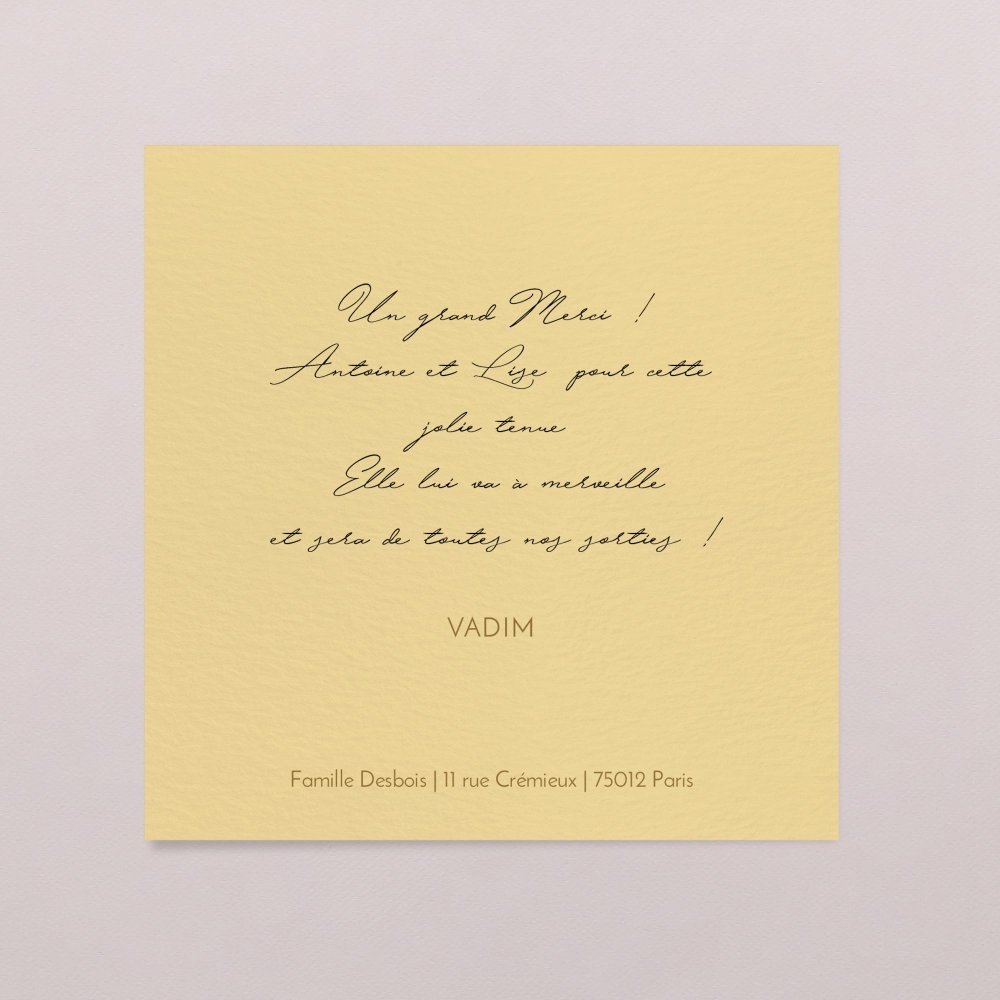 Un grand Merci !
Antoine et Lise pour cette
jolie tenue
Elle lui va à merveille
et sera de toutes nos sorties !
VADIM
Famille Desbois | 11 rue Crémieux | 75012 Paris